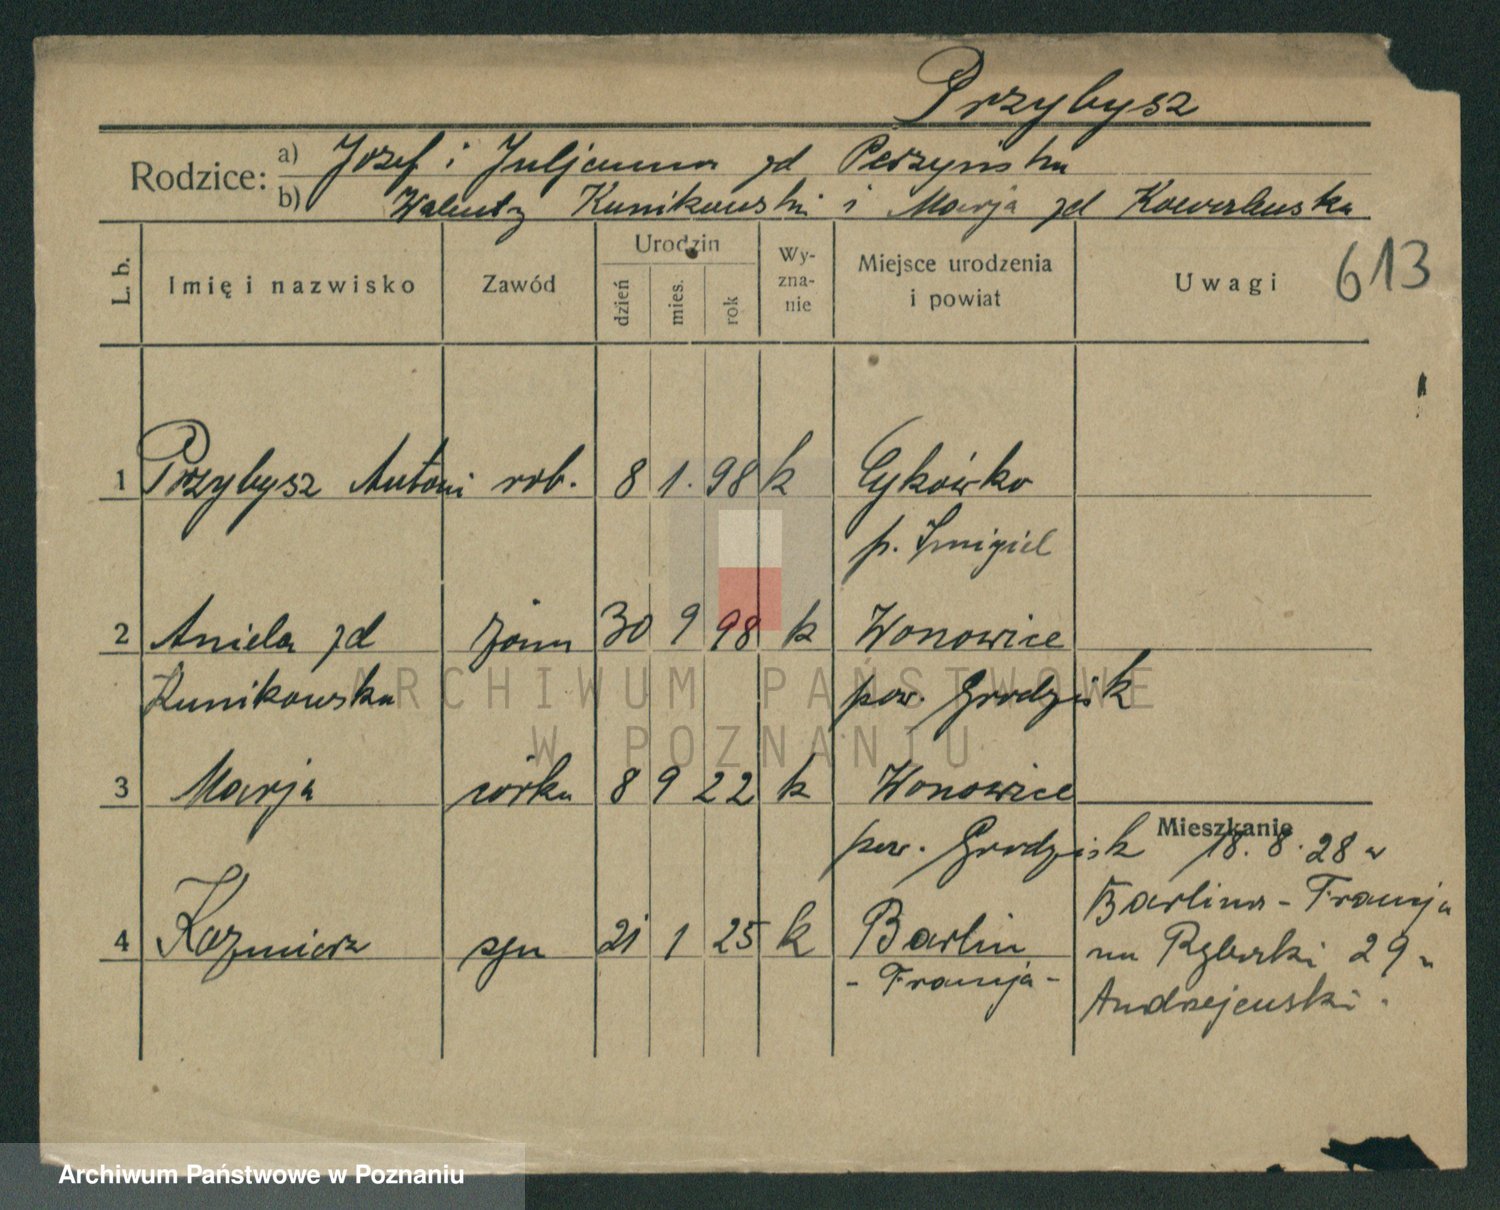 Przybysz
Rodzice: a) Józef i Juljanna zd Perzyńska
b) Walenty Kunikowski i Marja zd Kowalewska
L. b. Imię i nazwisko Zawód Urodzin dzień mies. rok Wy-zna-nie Miejsce urodzenia i powiat Uwagi 613
1 Przybysz Antoni rob. 8 1. 98 k Cykówko
p. Śmigiel
2 Aniela zd żona 30 9 98 k Wonowice
Kunikowska pow. Grodzisk
ARCHIWUM PAŃSTWOWE
W POZNANIU
3 Marja córka 8 9 22 k Wonowice
pow. Grodzisk
Mieszkanie
18. 8. 28 w
4 Kazmierz syn 21 1 25 k Barlin
- Francja -
Barlina - Francja
na Rybarki 29 u
Andrzejewski.
Archiwum Państwowe w Poznaniu